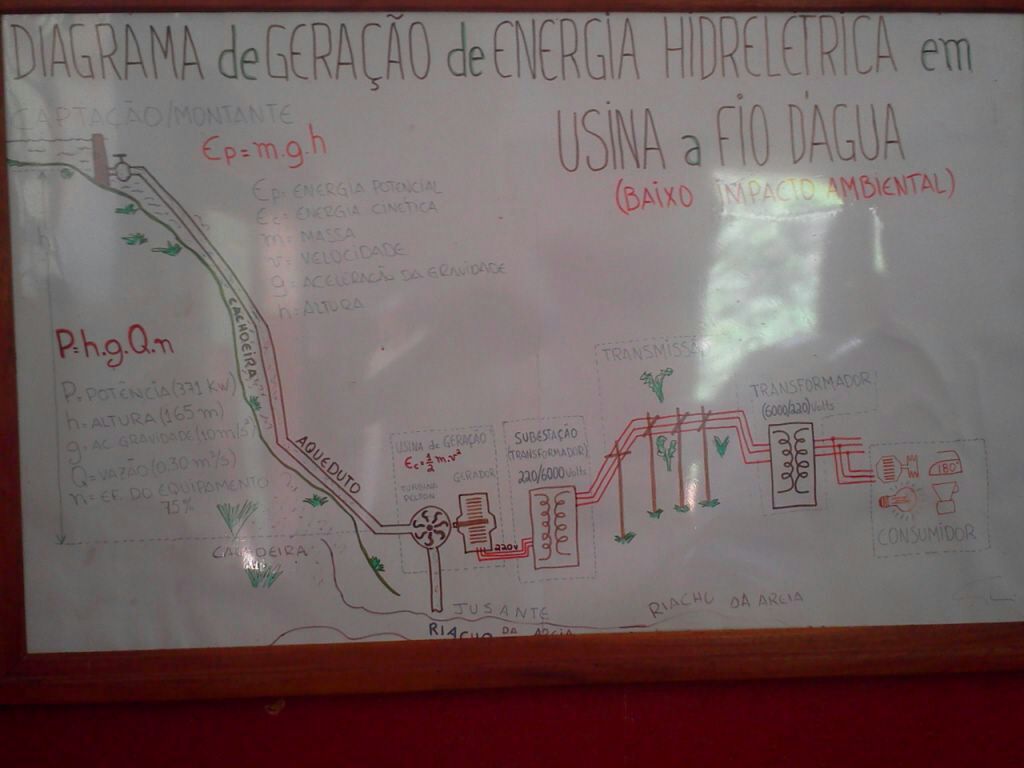 DIAGRAMA de GERAÇÃO de ENERGIA HIDRELÉTRICA em
USINA a FIO D'AGUA
(BAIXO IMPACTO AMBIENTAL)
CAPTAÇÃO/MONTANTE
Ep=m.g.h
Ep= ENERGIA POTENCIAL
Ec= ENERGIA CINÉTICA
m= MASSA
v= VELOCIDADE
g= ACELERAÇÃO DA GRAVIDADE
h= ALTURA
h
CACHOEIRA
P=h.g.Q.n
P= POTÊNCIA (371 KW)
h= ALTURA (165 m)
g= AC GRAVIDADE (10 m/s²)
Q= VAZÃO (0,30 m³/s)
n= EF. DO EQUIPAMENTO
75%
AQUEDUTO
CACHOEIRA
USINA de GERAÇÃO
Ec=½ m.v²
GERADOR
TURBINA
PELTON
220v
SUBESTAÇÃO
(TRANSFORMADOR)
220/6000 Volts
TRANSMISSÃ
TRANSFORMADOR
(6000/220) Volts
180°
CONSUMIDOR
JUSANTE
RIACHO DA AREIA
RIACHO DA AREIA